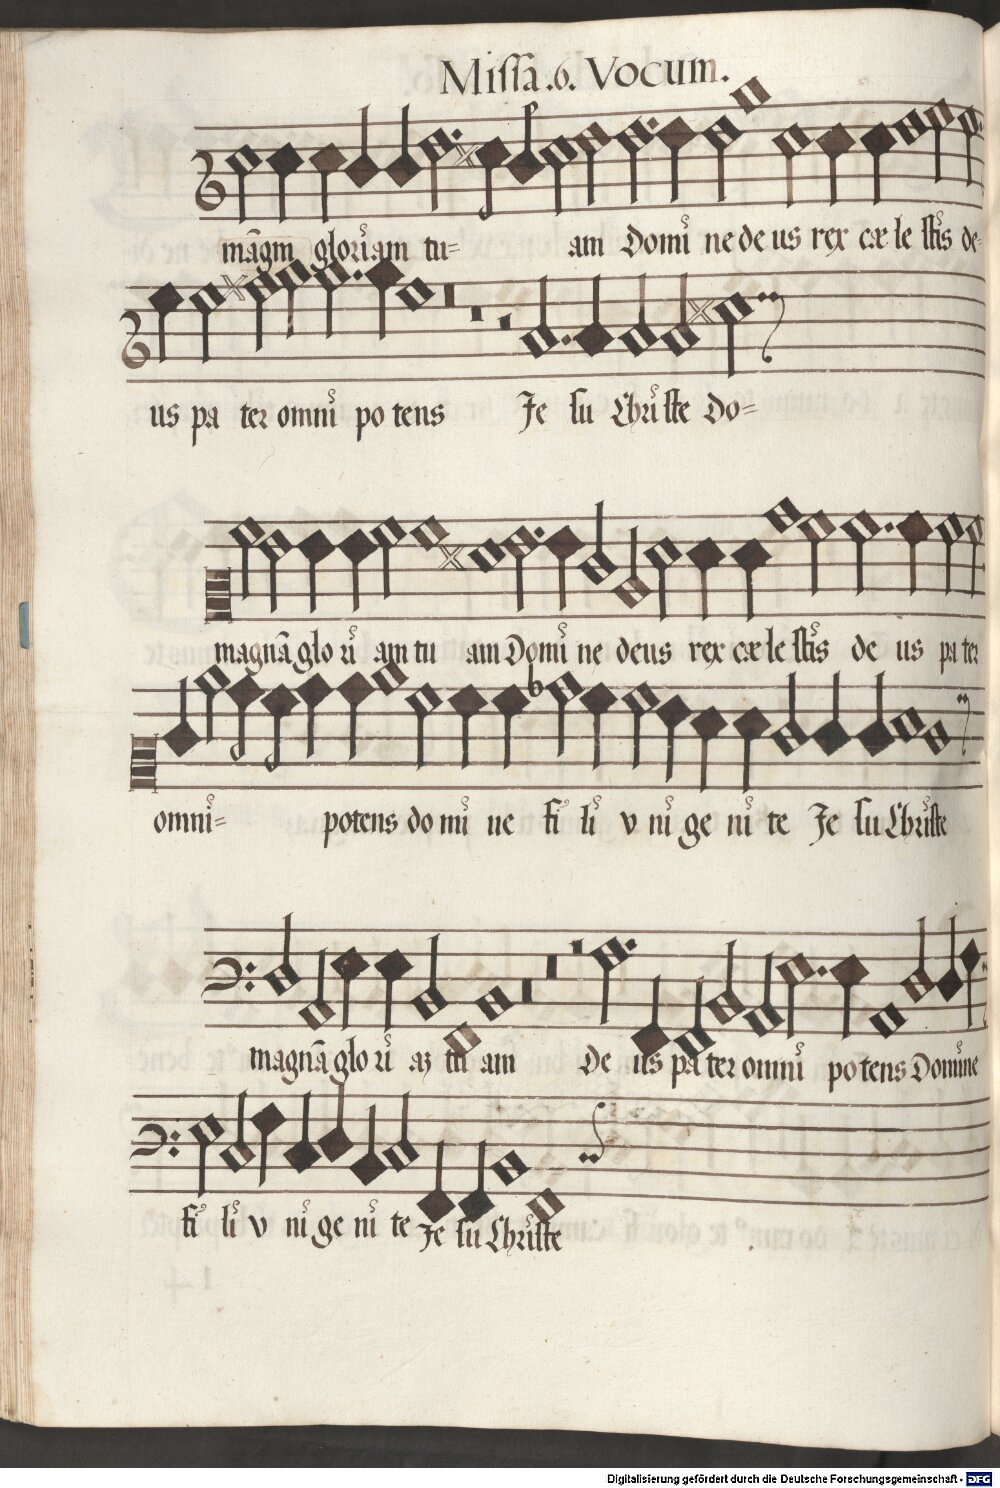 Missa .6. Vocum.
mãgm gloriam tu= am Domi ne de us rex cæ le stis de=
us pa ter omni po tens Je su Christe Do=
magnã glo ri am tu am Domi ne deus rex cæ le stis de us pa ter
omni= potens do mi ne fi li v ni ge ni te Je su Christe
magnã glo ri aʒ tu am De us pa ter omni po tens Domine
fi li v ni ge ni te Je su Christe
Digitalisierung gefördert durch die Deutsche Forschungsgemeinschaft - DFG